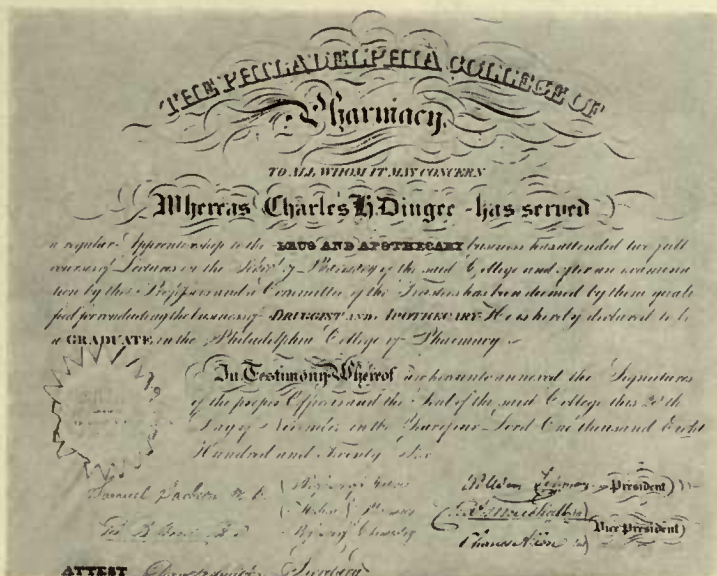 THE PHILADELPHIA COLLEGE OF
Pharmacy.
TO ALL WHOM IT MAY CONCERN
Whereas Charles H. Dingee has served
a regular Apprenticeship to the DRUG AND APOTHECARY business has attended two full
courses of Lectures in the School of Pharmacy of the said College and after an examina
tion by the Professors and a Committee of the Trustees has been deemed by them quali
fied for conducting the business of DRUGGIST AND APOTHECARY He is hereby declared to be
a GRADUATE in the Philadelphia College of Pharmacy
In Testimony Whereof are hereunto annexed the Signatures
of the proper Officers and the Seal of the said College this
Day of November in the Year of our Lord One thousand Eight
Hundred and Twenty Six
Samuel Jackson M.D.
President
Vice President
ATTEST Secretary